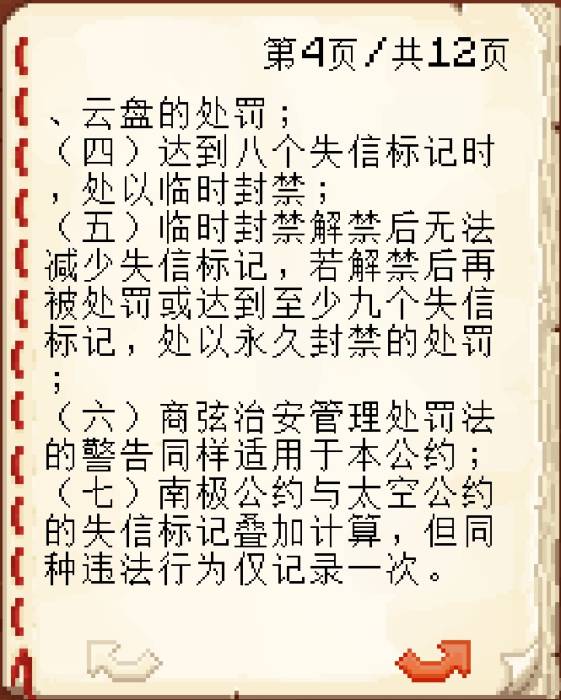 第4页/共12页
、云盘的处罚；
（四）达到八个失信标记时
，处以临时封禁；
（五）临时封禁解禁后无法
减少失信标记，若解禁后再
被处罚或达到至少九个失信
标记，处以永久封禁的处罚
；
（六）商弦治安管理处罚法
的警告同样适用于本公约；
（七）南极公约与太空公约
的失信标记叠加计算，但同
种违法行为仅记录一次。